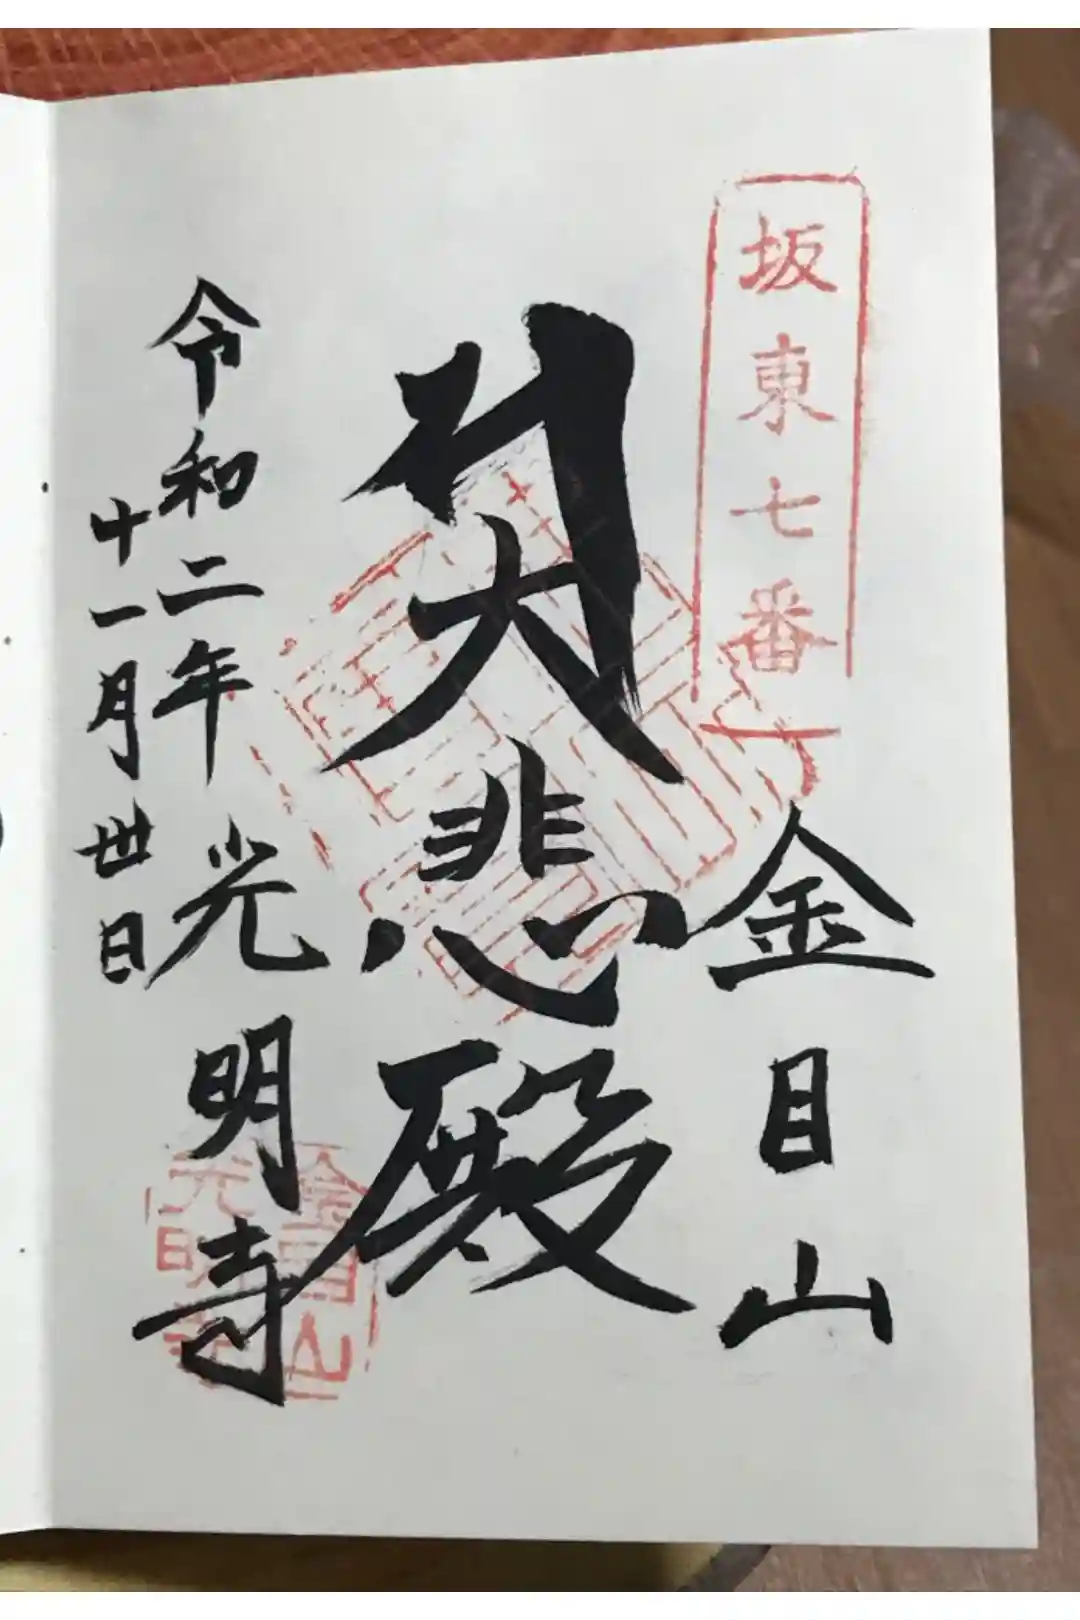 坂東七番
金目山
大悲殿
令和二年
十一月丗日
光明寺
金目山
光明寺